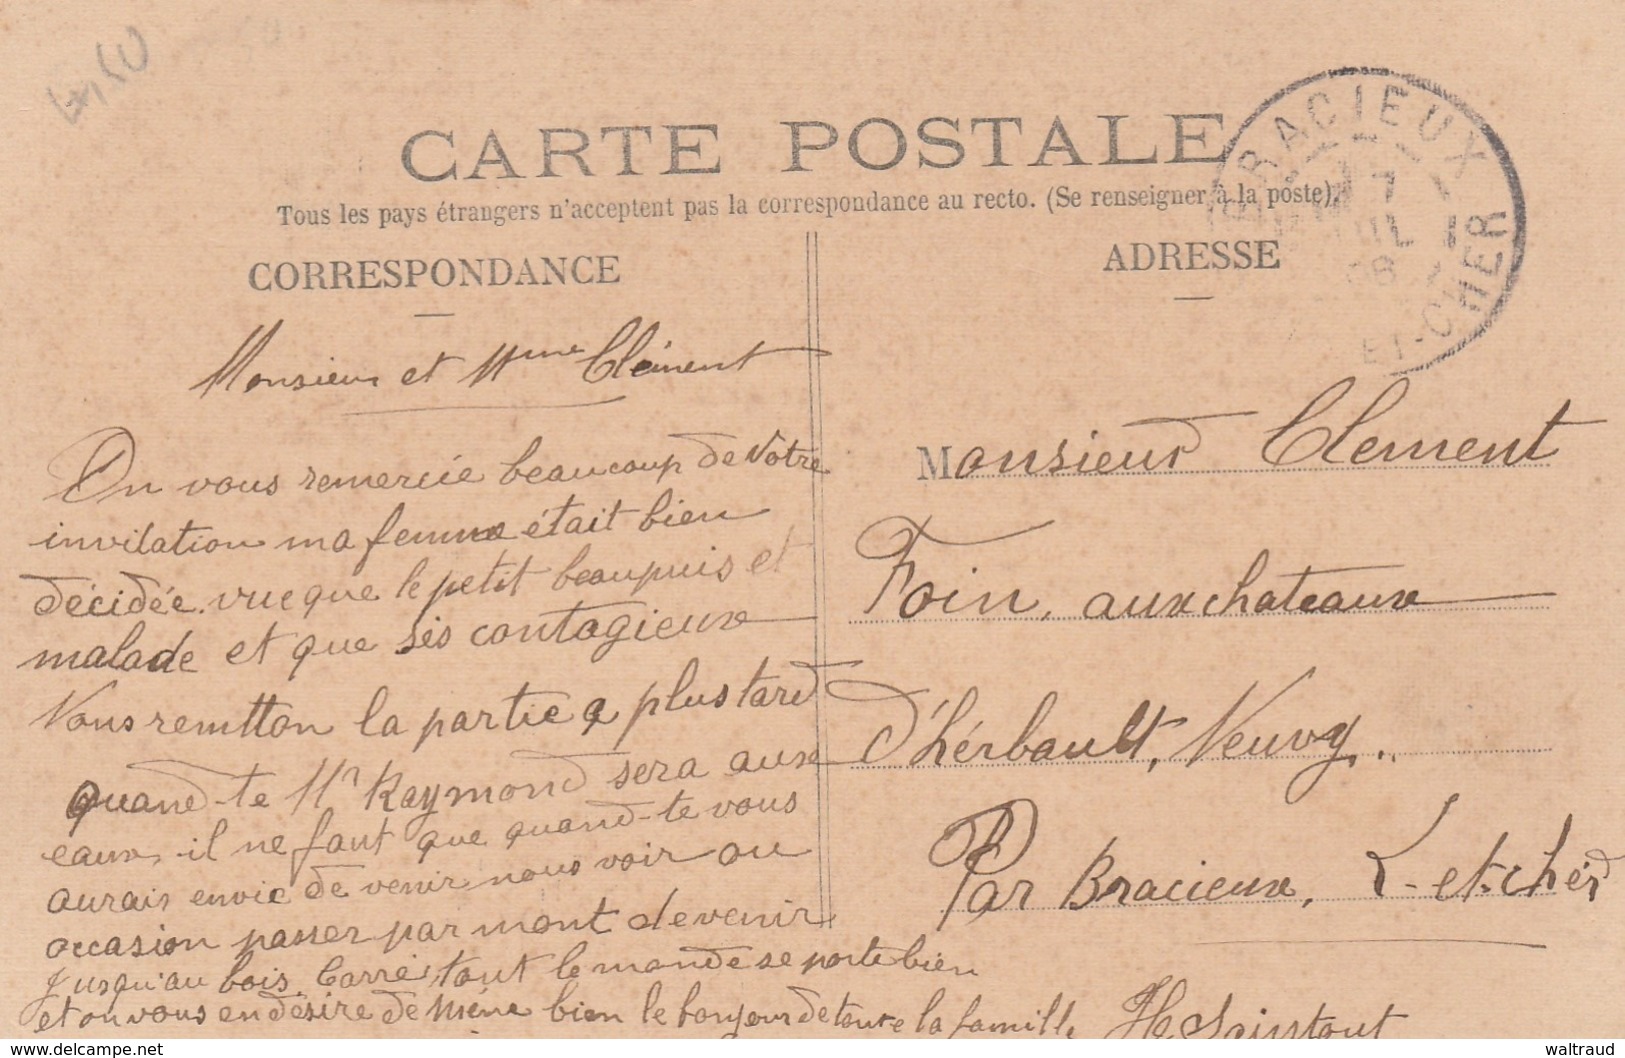 CARTE POSTALE
Tous les pays étrangers n'acceptent pas la correspondance au recto. (Se renseigner à la poste).
CORRESPONDANCE
ADRESSE
BRACIEUX
7
JUIL
08
ET-CHER
Monsieur et Mme Clément
On vous remercie beaucoup de votre
invitation ma femme était bien
décidée. vue que le petit beaupuis et
malade et que sés contagieuse
Nous remtton la partie a plus tard
quand-te Mr Raymond sera aux
eaux, il ne faut que quand-te vous
aurais envie de venir nous voir ou
occasion passer par mont de venir
jusqu'au bois. Carré, tout le monde se porte bien
et on vous en désire de même bien le bonjour de toute la famille H Saintout
Monsieur Clement
Foin, aux chateaux
d'hérbault, Neuvy.
Par Bracieux, L-et-chér
www.delcampe.net
waltraud